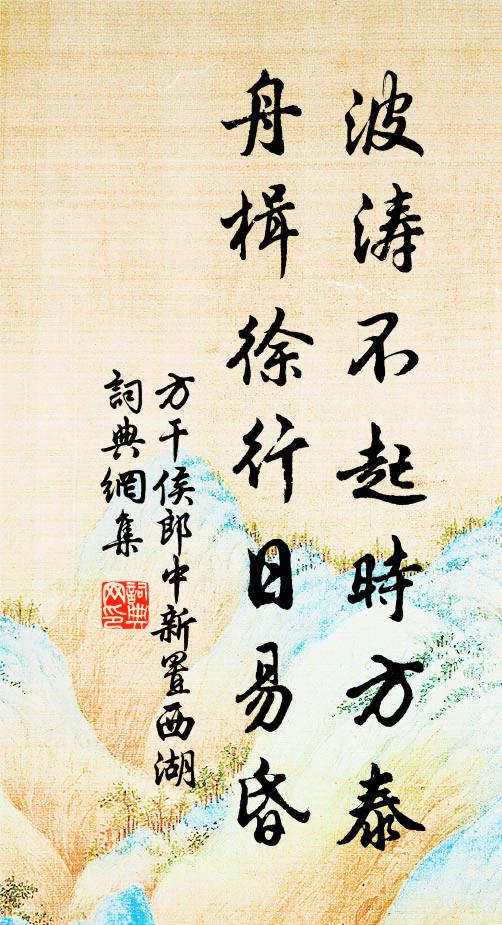 波濤不起時方泰
舟楫徐行日易昏
方干侯郎中新置西湖
詞典網集
詞典网印